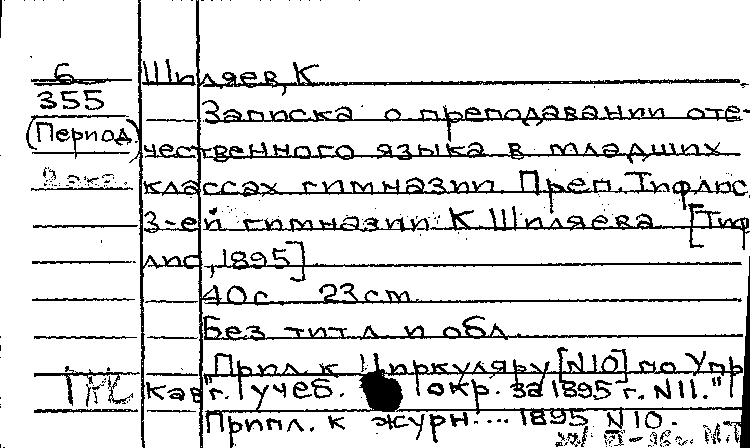 6
355
(Период.)
2 экз.
Шиляев, К
Записка о преподавании оте-
чественного языка в младших
классах гимназии. Преп. Тифлис
3-ей гимназии К. Шиляева [Тиф
лис, 1895]
40 с. 23 cm.
Без тит. л и обл.
"Прил. к Циркуляру [N10] по Упр
Кав"г. учеб. окр. за 1895 г. N11."
Прил. к журн.... 1895 N10.